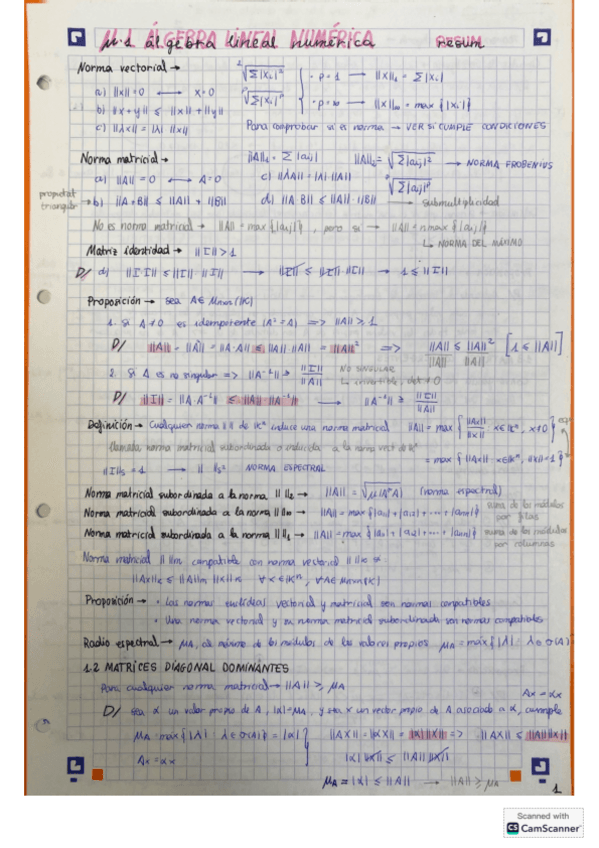 1.1 álgebra lineal numérica resum
Norma vectorial →
a) ||x|| = 0 ⟷ x = 0
b) ||x + y|| ≤ ||x|| + ||y||
c) ||λx|| = |λ| ||x||
²√Σ|xᵢ|²
ᵖ√Σ|xᵢ|ᵖ
· p = 1 → ||x||₁ = Σ|xᵢ|
· p = ∞ → ||x||∞ = max {|xᵢ|}
Para comprobar si es norma → VER SI CUMPLE CONDICIONES
Norma matricial → ||A||₁ = Σ|aᵢⱼ| ||A||₂ = √Σ|aᵢⱼ|² → NORMA FROBENIUS
a) ||A|| = 0 ⟷ A = 0 c) ||λA|| = |λ| ||A|| ᵖ√Σ|aᵢⱼ|ᵖ
propietat triangular → b) ||A + B|| ≤ ||A|| + ||B|| d) ||A B|| ≤ ||A|| · ||B|| → submultiplicidad
No es norma matricial → ||A|| = max {|aᵢⱼ|}, pero sí → ||A|| = n max {|aᵢⱼ|}
↳ NORMA DEL MÁXIMO
Matriz identidad → ||I|| > 1
D/ d) ||I I|| ≤ ||I|| ||I|| → ||I|| ≤ ||I|| · ||I|| → 1 ≤ ||I||
Proposición → sea A ∈ Mnxn(K)
1. Si A ≠ 0 es idempotente (A² = A) => ||A|| ≥ 1
D/ ||A|| = ||A²|| = ||A·A|| ≤ ||A|| ||A|| = ||A||² => ||A||/||A|| ≤ ||A||²/||A|| [1 ≤ ||A||]
2. Si A es no singular => ||A⁻¹|| ≥ ||I||/||A|| NO SINGULAR
↳ invertible, det ≠ 0
D/ ||I|| = ||A·A⁻¹|| ≤ ||A|| ||A⁻¹|| → ||A⁻¹|| ≥ ||I||/||A||
Definición → Cualquier norma || || de Kⁿ induce una norma matricial ||A|| = max { ||Ax||/||x|| x ∈ Kⁿ, x ≠ 0 }
llamada norma matricial subordinada o inducida a la norma vect. de Kⁿ
= max { ||Ax|| x ∈ Kⁿ, ||x|| = 1 }
||I||s = 1 → || ||s² NORMA ESPECTRAL
Norma matricial subordinada a la norma || ||₂ → ||A|| = √μ(A*A) (norma espectral)
Norma matricial subordinada a la norma || ||∞ → ||A|| = max {|aᵢ₁| + |aᵢ₂| + ··· + |aᵢₙ|} suma de los módulos por filas
Norma matricial subordinada a la norma || ||₁ → ||A|| = max {|a₁ᵢ| + |a₂ᵢ| + ··· + |aₙᵢ|} suma de los módulos por columnas
Norma matricial || ||m compatible con norma vectorial || ||K
||Ax||K ≤ ||A||m ||x||K ∀x ∈ Kⁿ, ∀A ∈ Mnxn(K)
Proposición → · Las normas euclídeas vectorial y matricial son normas compatibles
· Una norma vectorial y su norma matricial subordinada son normas compatibles
Radio espectral → μA, al máximo de los módulos de los valores propios μA = max {|λ| : λ ∈ σ(A)}
1.2 MATRICES DIAGONAL DOMINANTES
Para cualquier norma matricial → ||A|| ≥ μA
Ax = αx
D/ sea α un valor propio de A, |α| = μA, y sea x un vector propio de A asociado a α, cumple
μA = max {|λ| : λ ∈ σ(A)} = |α| ||AX|| = ||αX|| = |α| ||X|| => ||AX|| ≤ ||A|| ||X||
Ax = αx |α| ||X|| ≤ ||A|| ||X||
μA = |α| ≤ ||A|| → ||A|| ≥ μA
1
Scanned with
CS CamScanner